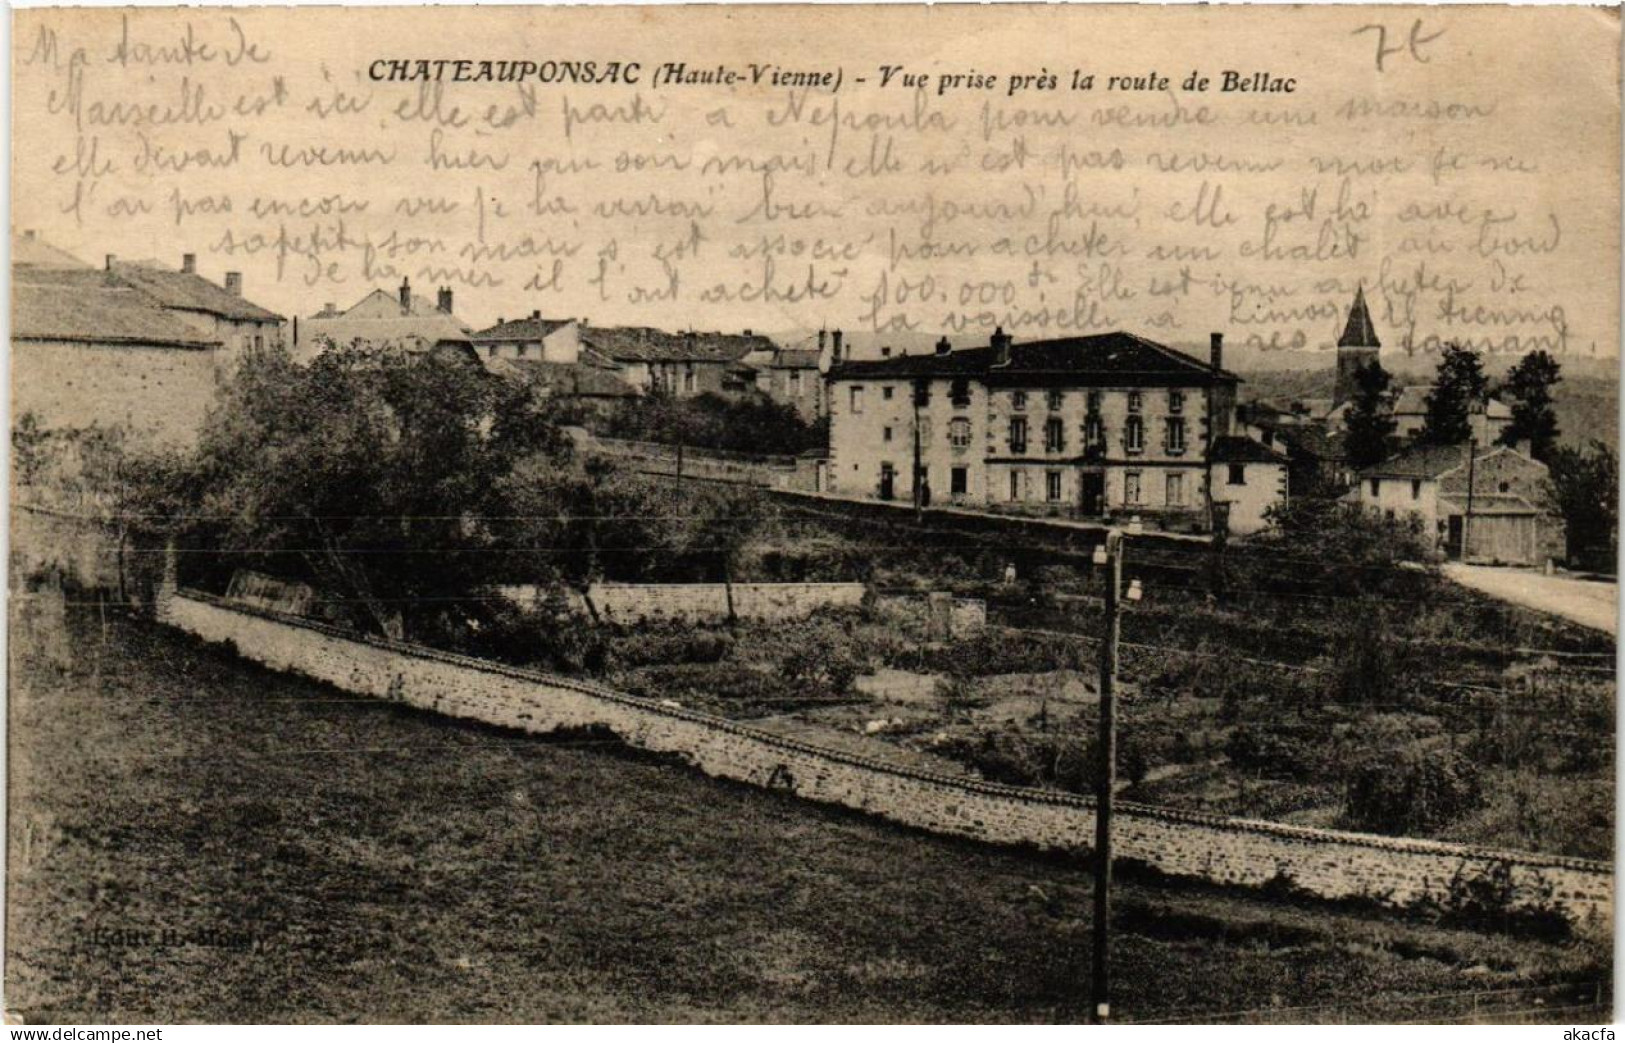 7€
Ma tante de
CHATEAUPONSAC (Haute-Vienne) - Vue prise près la route de Bellac
Marseille est ici elle est parti a Nepoula pour vendre une maison
elle devait revenir hier au soir mais elle n'est pas revenu moi je ne
l'ai pas encore vu je la verrai bien aujourd'hui, elle est là avec
sa petit son mari s'est associé pour acheter un chalet au bord
de la mer il l'ont acheté 100.000 fr Elle est venu acheter de
la vaisselle a Limoges
Edit. H. Mondy
akacfa
https://www.delcampe.net